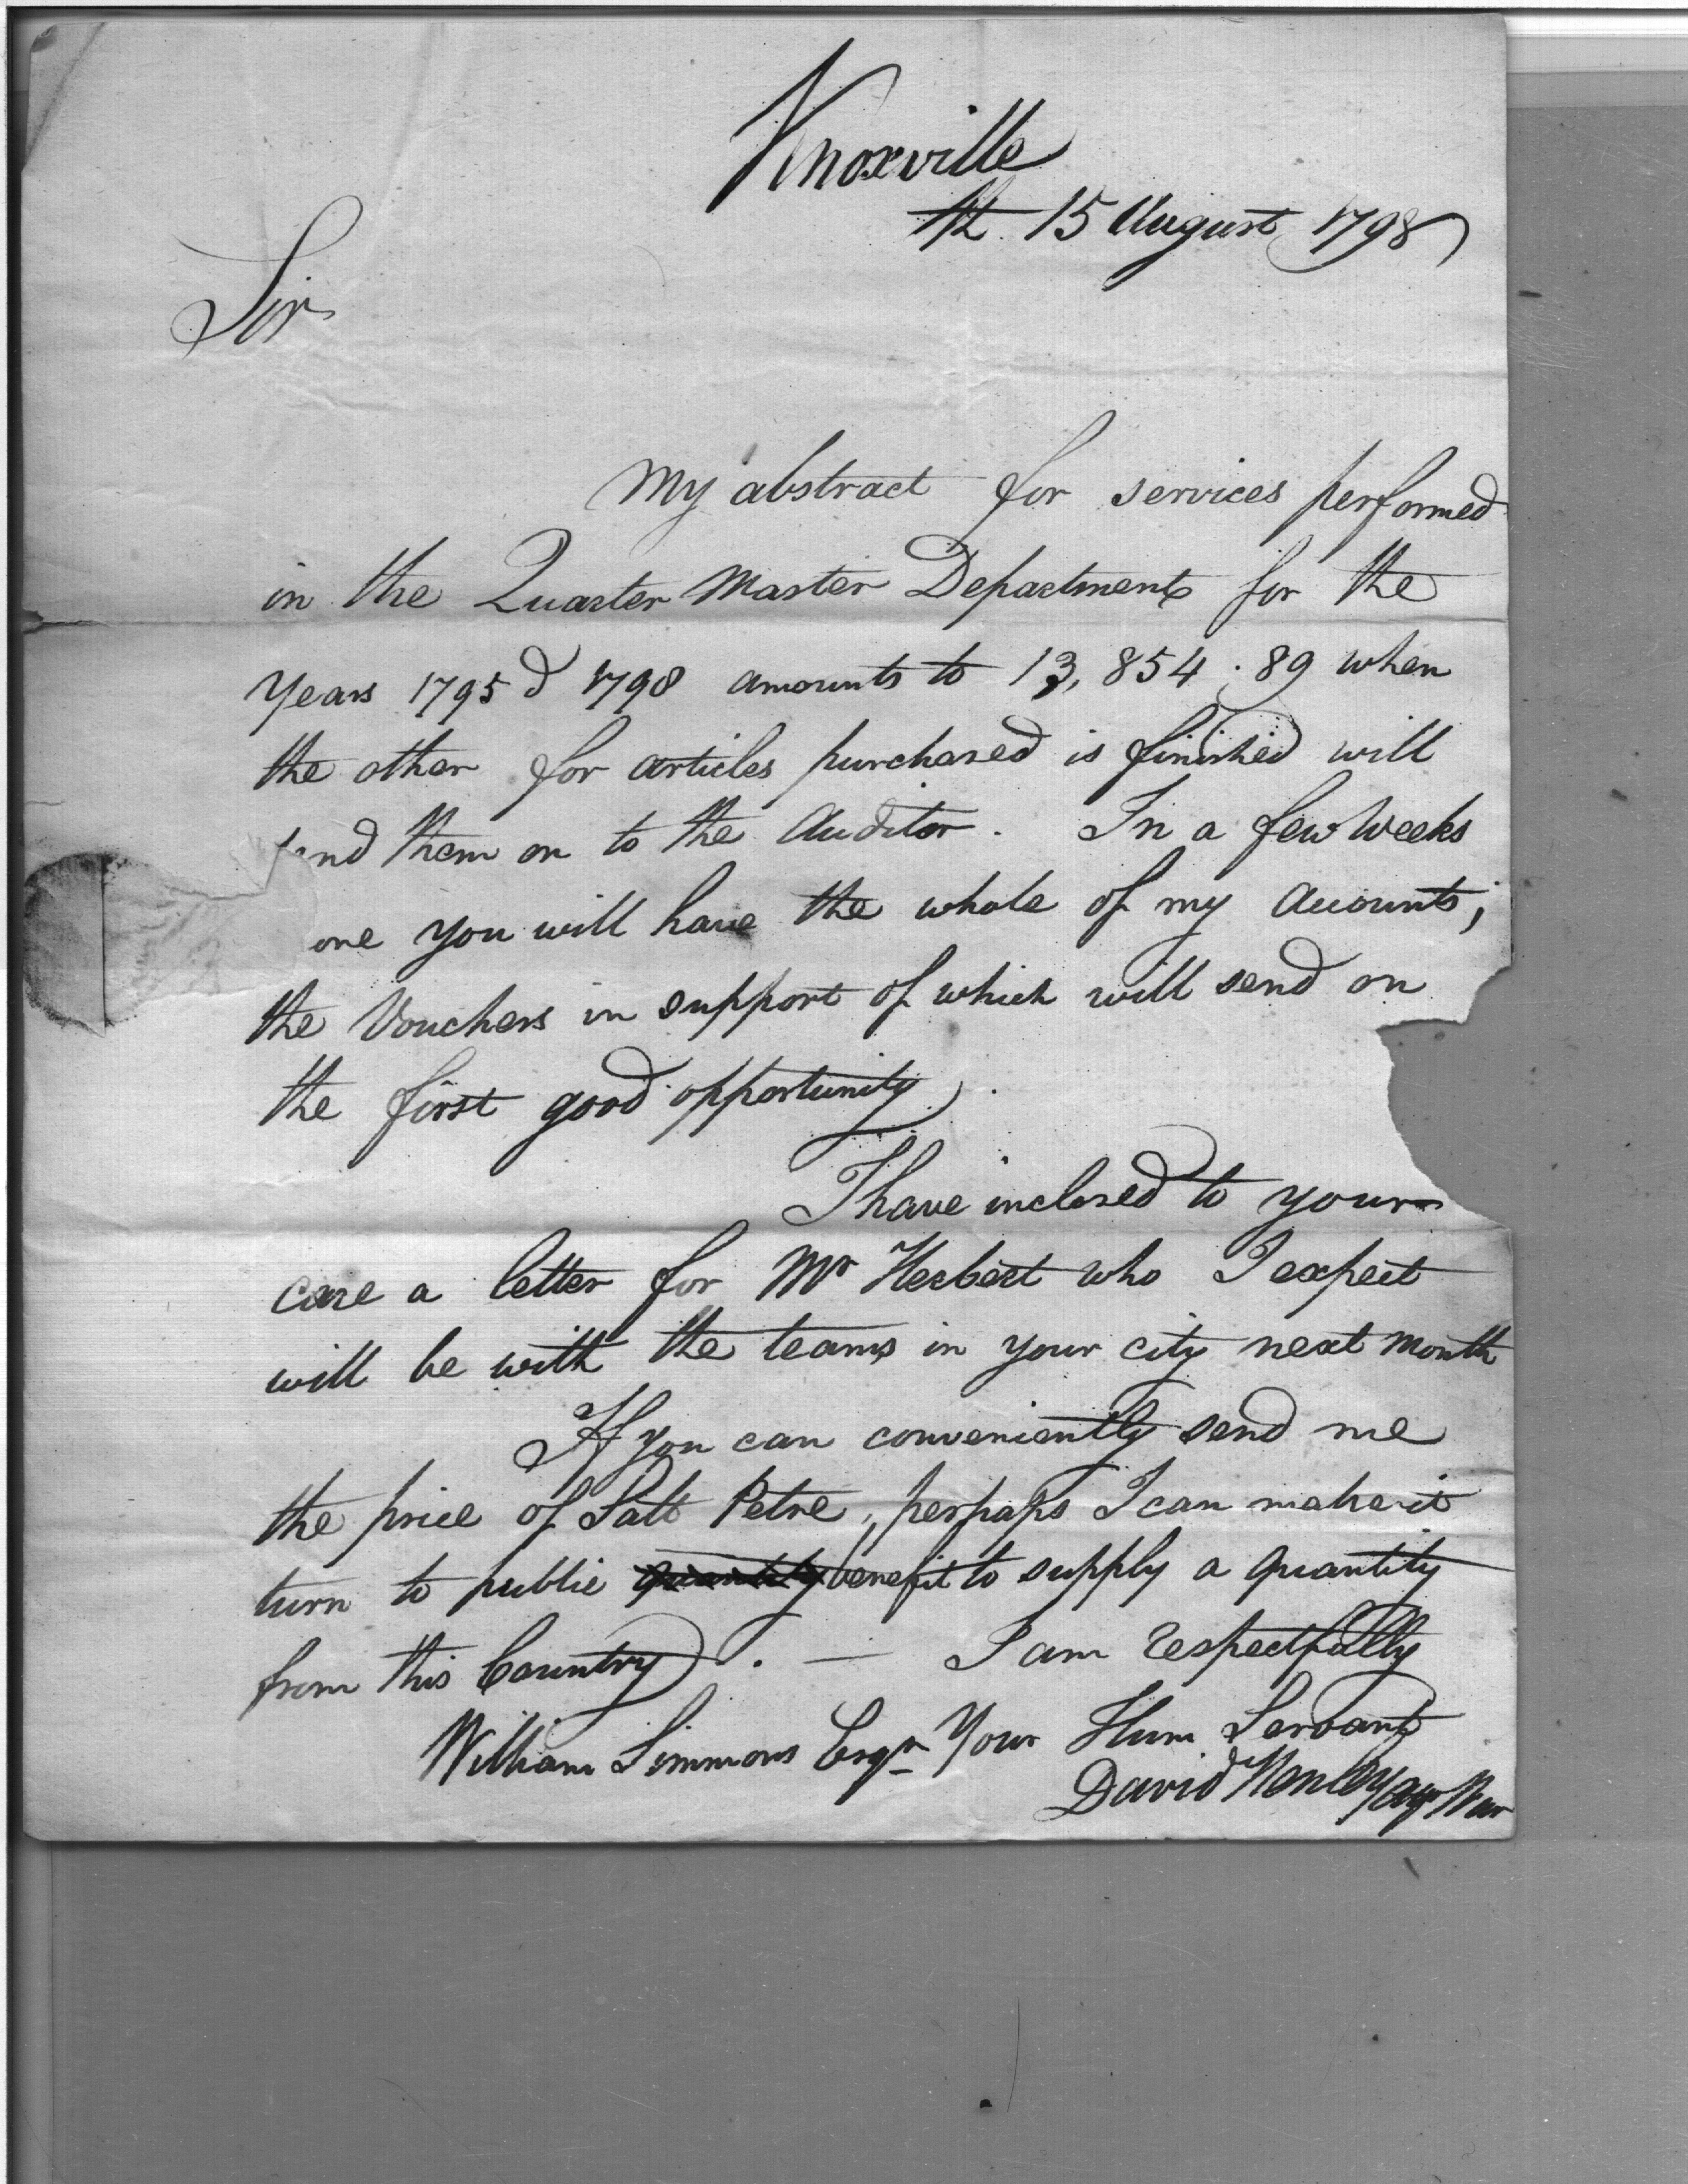 Knoxville
15 August 1798
Sir
My abstract for services performed
in the Quarter Master Department for the
years 1795 & 1798 amounts to 13,854.89 when
the other for articles purchased is finished will
send them on to the Auditor. In a few weeks
more you will have the whole of my Accounts;
the Vouchers in support of which will send on
the first good opportunity.
I have inclosed to your
care a letter for Mr Herbert who I expect
will be with the teams in your city next month
If you can conveniently send me
the price of Salt Petre, perhaps I can make it
turn to public quantity benefit to supply a quantity
from this Country. — I am respectfully
William Simmons Esqr Your Hum Servant
David Henley Agt War